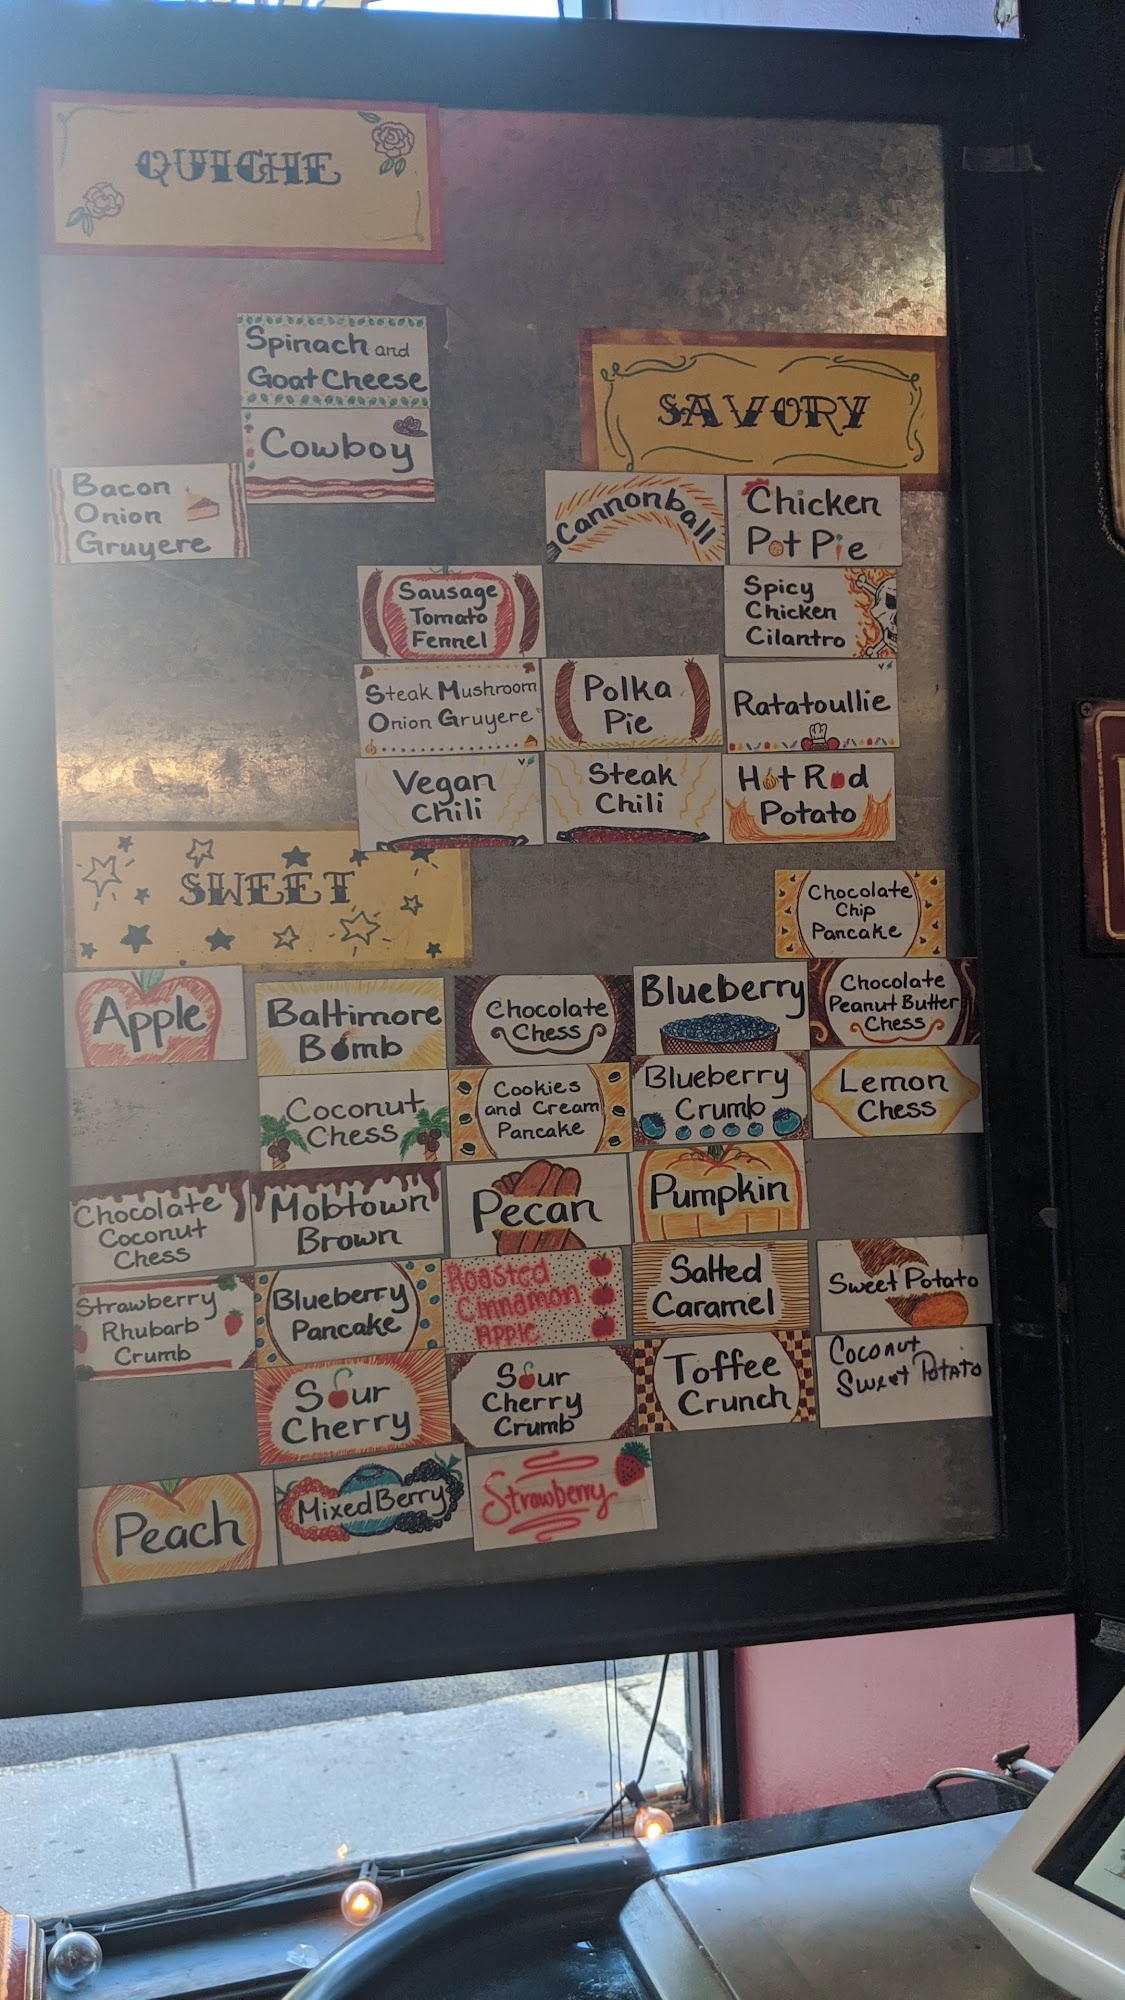 QUICHE
Spinach and
Goat Cheese
Cowboy
Bacon
Onion
Gruyere
SAVORY
Cannonball
Chicken
Pot Pie
Sausage
Tomato
Fennel
Spicy
Chicken
Cilantro
Steak Mushroom
Onion Gruyere
Polka
Pie
Ratatoullie
Vegan
Chili
Steak
Chili
Hot Rod
Potato
SWEET
Chocolate
Chip
Pancake
Apple
Baltimore
Bomb
Chocolate
Chess
Blueberry
Chocolate
Peanut Butter
Chess
Coconut
Chess
Cookies
and Cream
Pancake
Blueberry
Crumb
Lemon
Chess
Chocolate
Coconut
Chess
Mobtown
Brown
Pecan
Pumpkin
Strawberry
Rhubarb
Crumb
Blueberry
Pancake
Roasted
Cinnamon
Apple
Salted
Caramel
Sweet Potato
Sour
Cherry
Sour
Cherry
Crumb
Toffee
Crunch
Coconut
Sweet Potato
Peach
Mixed Berry
Strawberry